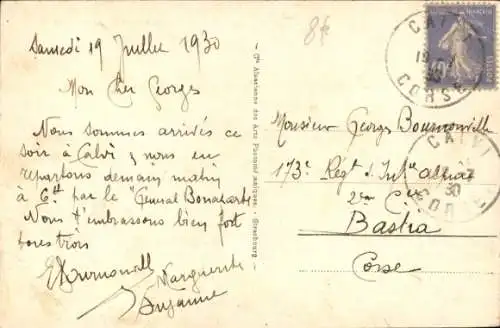 Samedi 19 Juillet 1930
Mon Cher Georges
Nous sommes arrivés ce
soir à Calvi & nous en
repartons demain matin
à 6h. par le "Général Bonaparte"
Nous t'embrassons bien fort
tous trois
EBournonville
Marguerite
Suzanne
Cie Alsacienne des Arts Photomécaniques - Strasbourg
8f
CALVI
19
30
CORSE
Monsieur Georges Bournonville
173e Régt d'Infie
2me Cie
Bastia
Corse
CALVI
30
CORSE